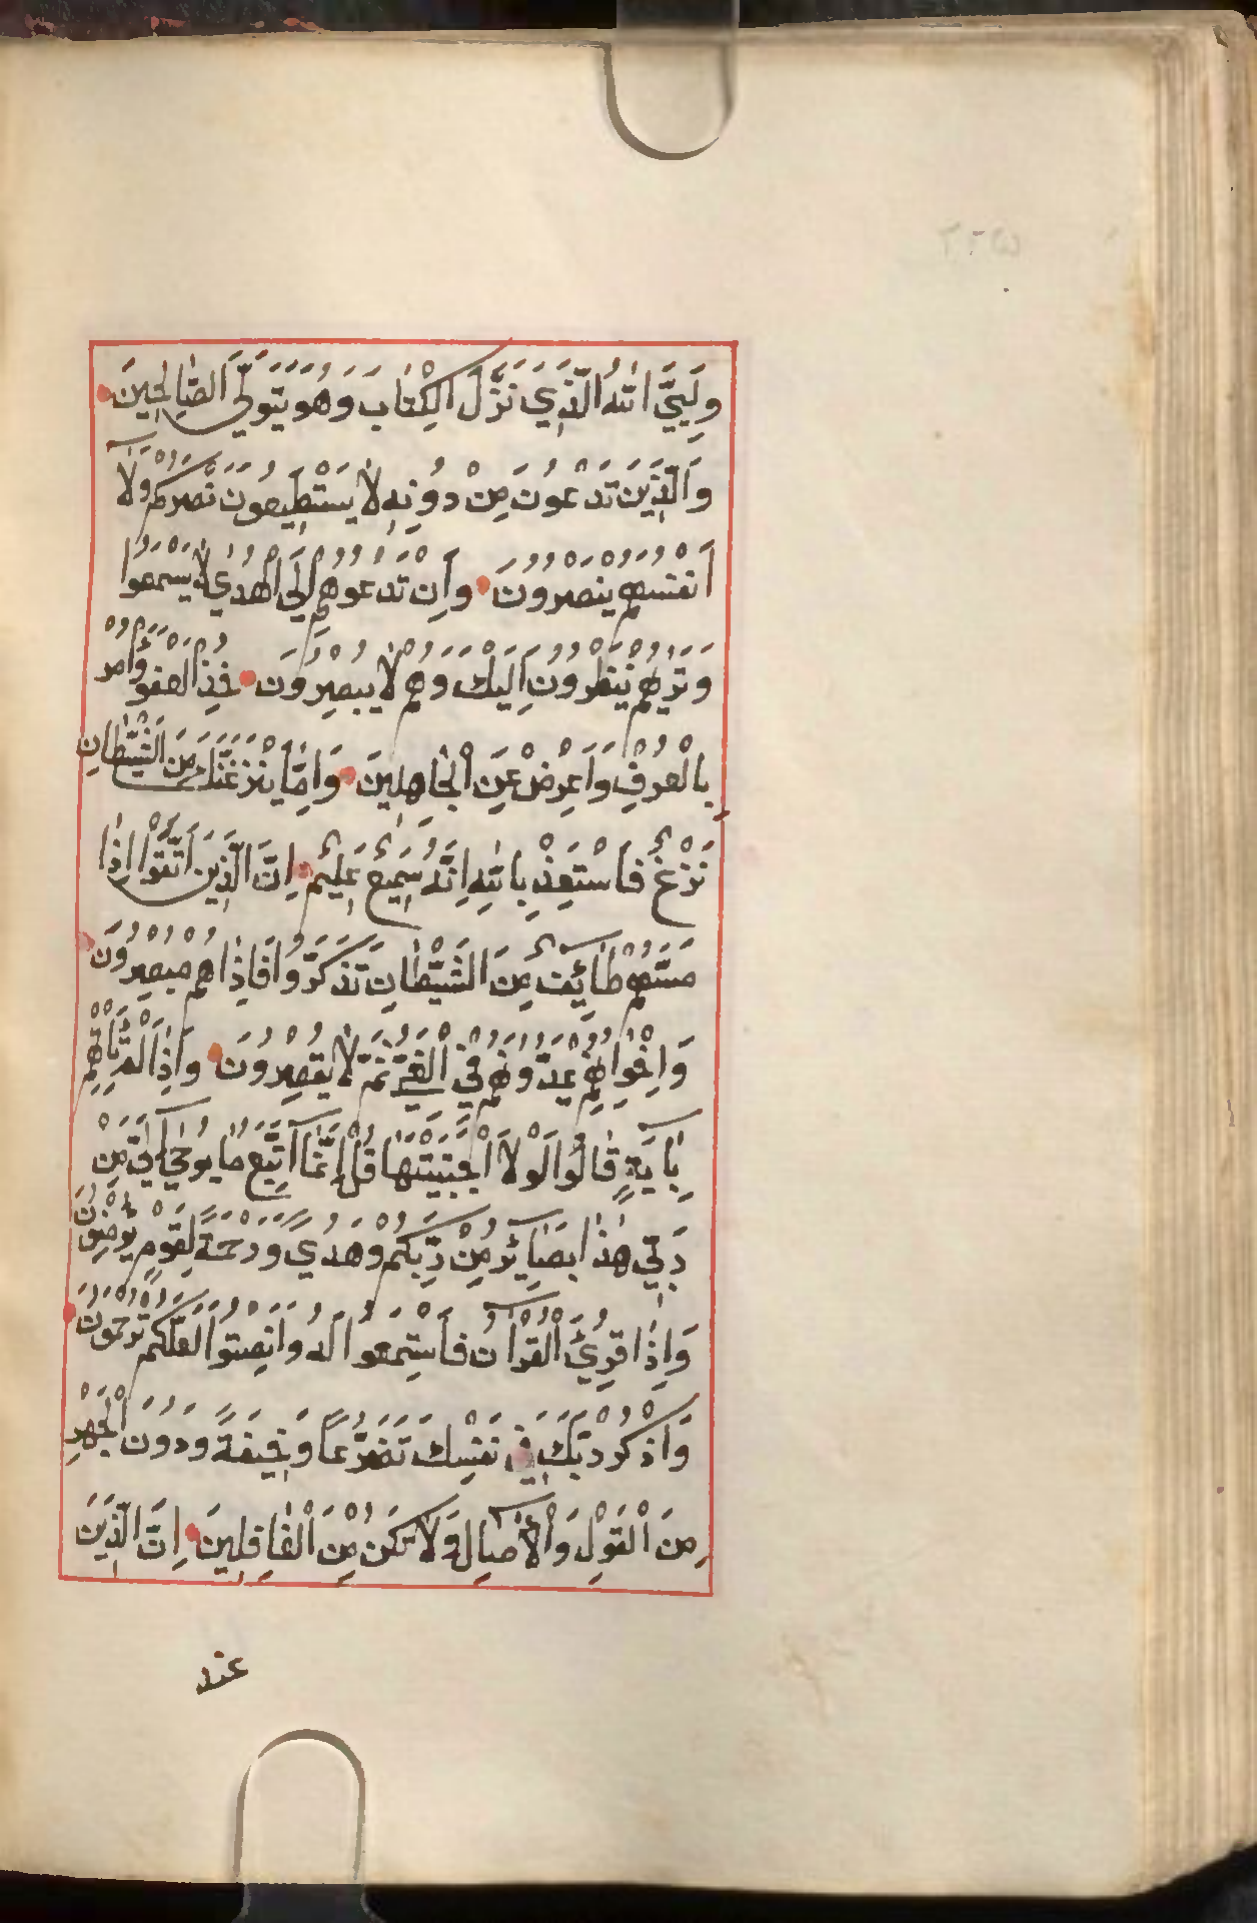 وَلِيِّيَ اللّٰهُ الَّذِي نَزَّلَ الْكِتَابَ وَهُوَ يَتَوَلَّى الصَّالِحِينَ
وَالَّذِينَ تَدْعُونَ مِنْ دُونِهِ لَا يَسْتَطِيعُونَ نَصْرَكُمْ وَلَا
أَنْفُسَهُمْ يَنْصُرُونَ وَاِنْ تَدْعُوهُمْ اِلَى الْهُدٰي لَا يَسْمَعُوا
وَتَرٰيهُمْ يَنْظُرُونَ اِلَيْكَ وَهُمْ لَا يُبْصِرُونَ خُذِ الْعَفْوَ وَأْمُرْ
بِالْعُرْفِ وَاَعْرِضْ عَنِ الْجَاهِلِينَ وَاِمَّا يَنْزَغَنَّكَ مِنَ الشَّيْطَانِ
نَزْغٌ فَاسْتَعِذْ بِاللّٰهِ اِنَّهُ سَمِيعٌ عَلِيمٌ اِنَّ الَّذِينَ اتَّقَوْا اِذَا
مَسَّهُمْ طَائِفٌ مِنَ الشَّيْطَانِ تَذَكَّرُوا فَاِذَا هُمْ مُبْصِرُونَ
وَاِخْوَانُهُمْ يَمُدُّونَهُمْ فِي الْغَيِّ ثُمَّ لَا يُقْصِرُونَ وَاِذَا لَمْ تَأْتِهِمْ
بِاٰيَةٍ قَالُوا لَوْلَا اجْتَبَيْتَهَا قُلْ اِنَّمَا اَتَّبِعُ مَا يُوحٰى اِلَيَّ مِنْ
رَبِّي هٰذَا بَصَائِرُ مِنْ رَبِّكُمْ وَهُدًي وَرَحْمَةٌ لِقَوْمٍ يُؤْمِنُونَ
وَاِذَا قُرِئَ الْقُرْآنُ فَاسْتَمِعُوا لَهُ وَاَنْصِتُوا لَعَلَّكُمْ تُرْحَمُونَ
وَاذْكُرْ رَبَّكَ فِي نَفْسِكَ تَضَرُّعًا وَخِيفَةً وَدُونَ الْجَهْرِ
مِنَ الْقَوْلِ وَالْاٰصَالِ وَلَا تَكُنْ مِنَ الْغَافِلِينَ اِنَّ الَّذِينَ
عند